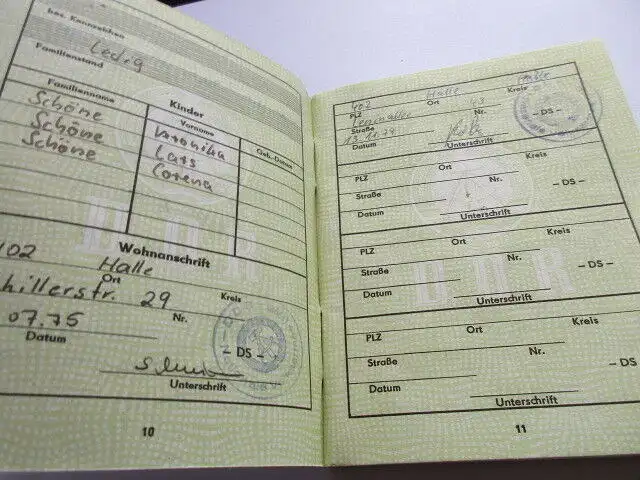 bes. Kennzeichen
Ledig
Familienstand
Kinder
Familienname Vorname Geb.-Datum
Schöne Veronika
Schöne Lars
Schöne Corena
DDR
Wohnanschrift
402 Halle
Ort Kreis
hillerstr. 29
Nr.
07.75
Datum
– DS –
Unterschrift
10
402 Halle Halle
PLZ Ort Kreis
43
Straße Nr.
13.11.79 – DS –
Datum Unterschrift
PLZ Ort Kreis
Straße Nr.
– DS –
Datum Unterschrift
PLZ Ort Kreis
Straße Nr.
– DS –
DDR
Datum Unterschrift
PLZ Ort Kreis
Straße Nr.
– DS
Datum Unterschrift
11